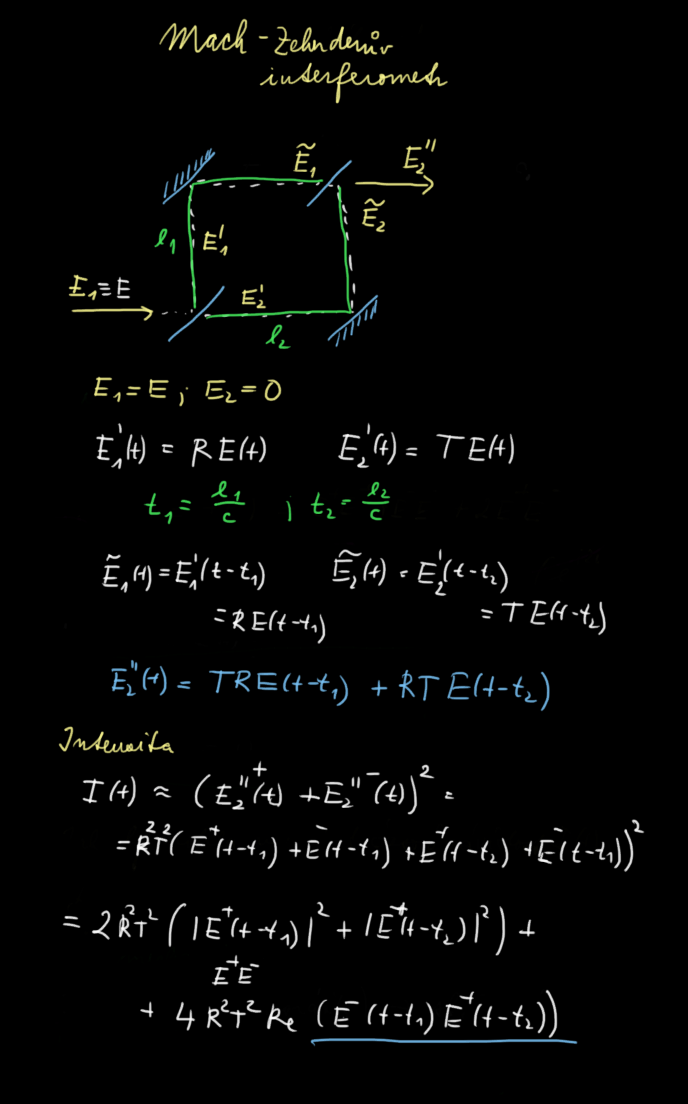 Mach-Zehnderův
interferometr
Ẽ₁
E₂''
Ẽ₂
l₁
E₁'
E₁≡E
E₂'
l₂
E₁=E ; E₂=0
E₁'(t) = RE(t) E₂'(t) = TE(t)
t₁ = l₁/c ; t₂ = l₂/c
Ẽ₁(t) = E₁'(t-t₁) Ẽ₂(t) = E₂'(t-t₂)
= RE(t-t₁) = TE(t-t₂)
E₂''(t) = TRE(t-t₁) + RTE(t-t₂)
Intensita
I(t) ≈ (E₂''⁺(t) + E₂''⁻(t))² =
= R²T²(E⁺(t-t₁) + E⁻(t-t₁) + E⁺(t-t₂) + E⁻(t-t₁))²
= 2R²T²(|E⁺(t-t₁)|² + |E⁺(t-t₂)|²) +
E⁺E⁻
+ 4R²T² Re (E⁻(t-t₁)E⁺(t-t₂))